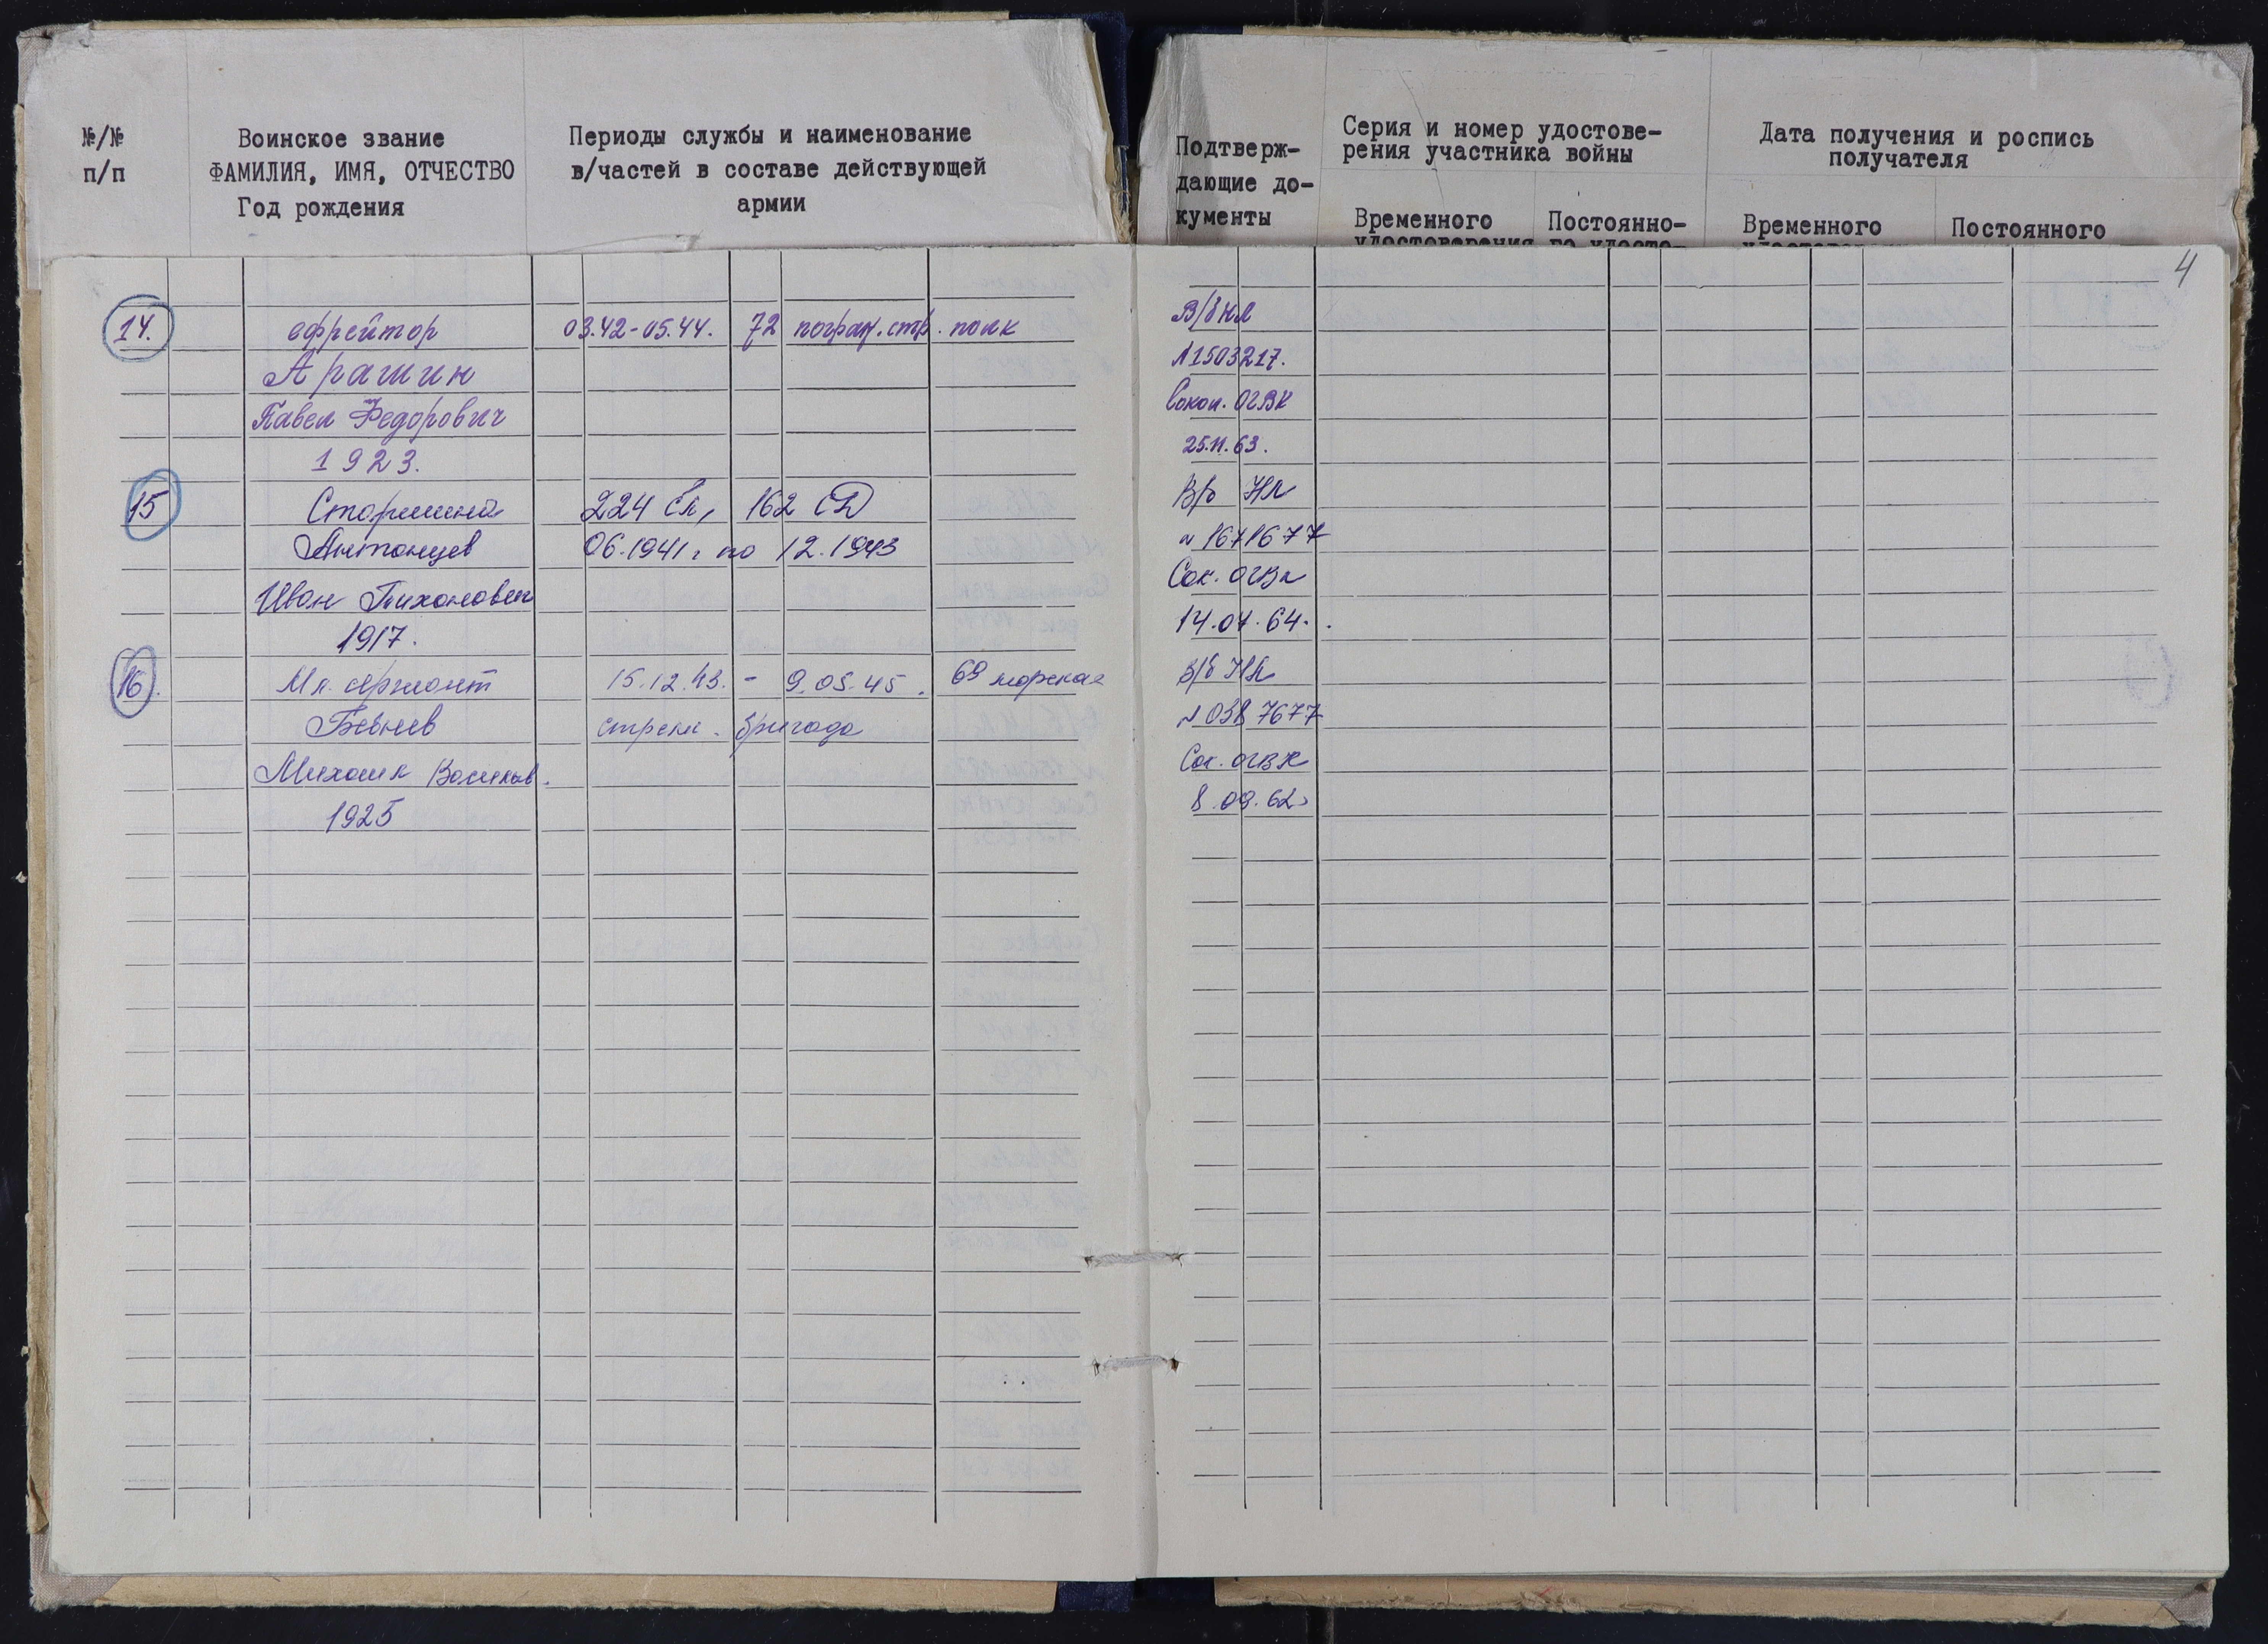 №/№
п/п
Воинское звание
ФАМИЛИЯ, ИМЯ, ОТЧЕСТВО
Год рождения
Периоды службы и наименование
в/частей в составе действующей
армии
Подтверж-
дающие до-
кументы
Серия и номер удостове-
рения участника войны
Временного
удостоверения
Постоянно-
го удосто-
Дата получения и роспись
получателя
Временного
Постоянного
4
14. ефрейтор 03.42-05.44. 72 погран. стр. полк
Арашин
Павел Федорович
1923.
В/б НЛ
№1503217.
Сокол. ОГВК
25.11.63.
15 Старшина 224 СП, 162 СД
Антонцев 06.1941 г по 12.1943
Иван Тихонович
1917.
В/б НЛ
№ 1671677
Сок. ОГВК
14.04.64.
16. Мл. сержант 15.12.43. - 9.05.45. 69 морская
Бевнев стрелк. бригада
Михаил Васильев.
1925
В/б НЛ
№ 0387677
Сок. ОГВК
8.09.62